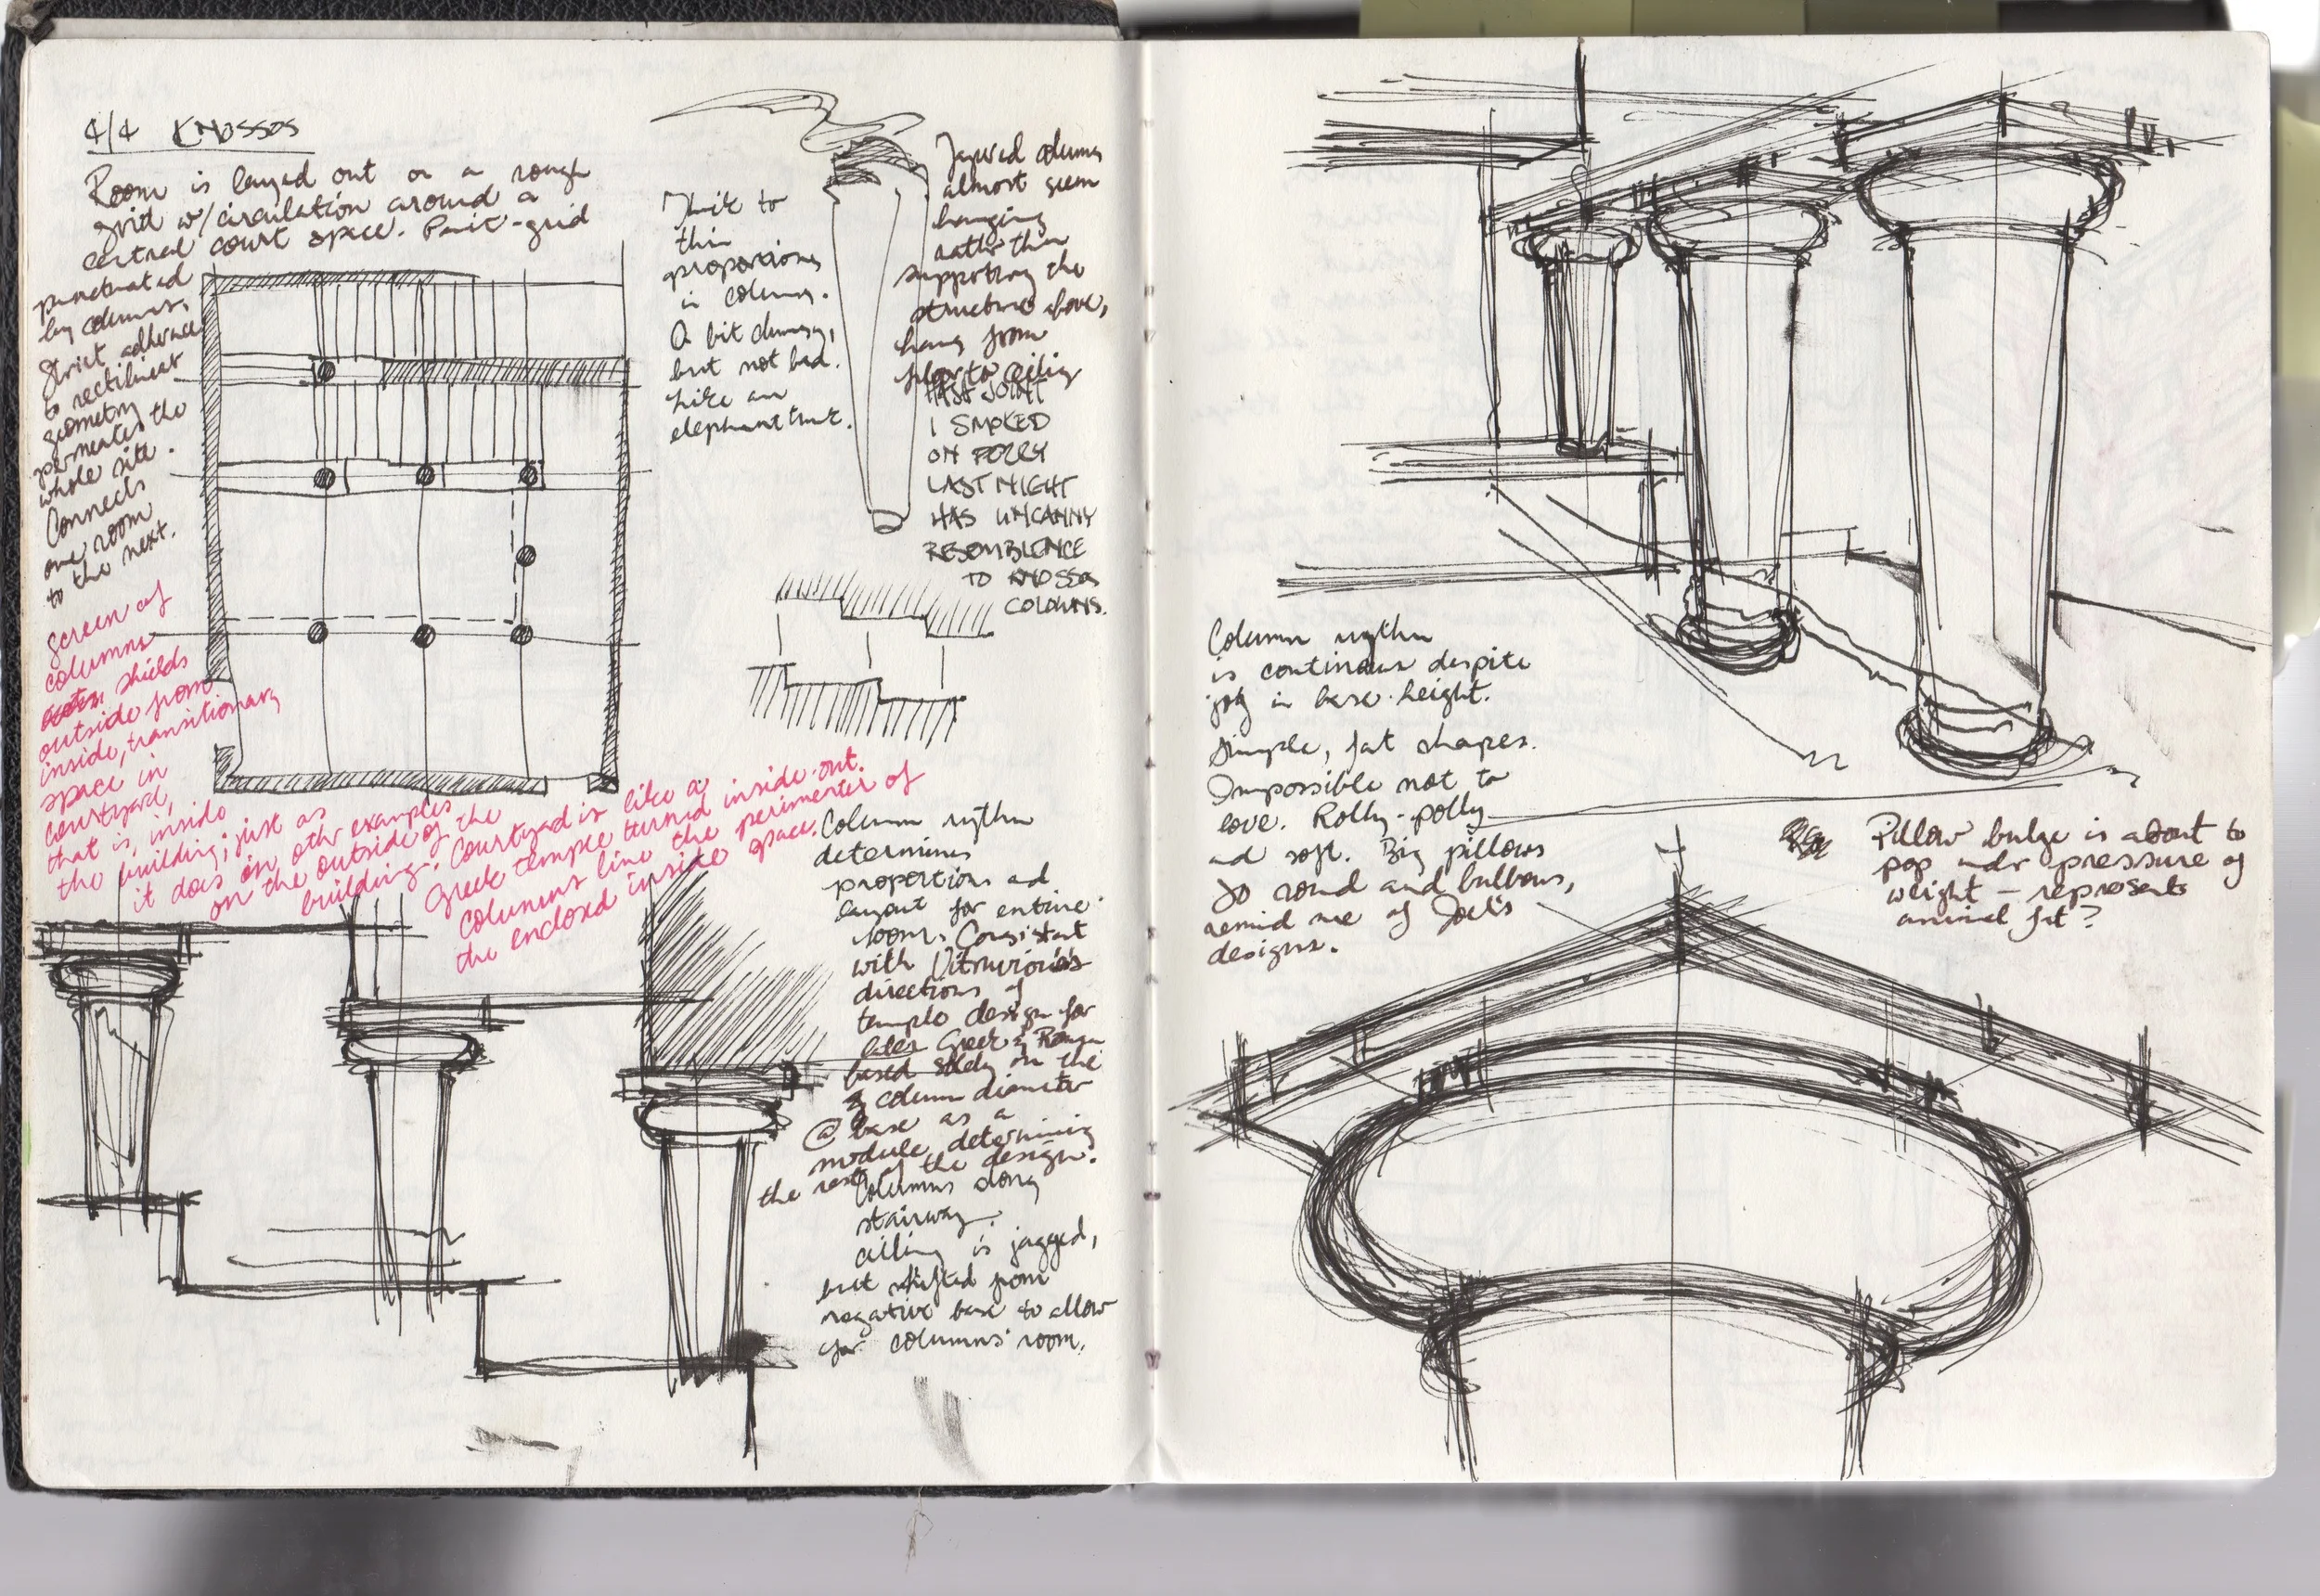 4/4 KNOSSOS
Room is layed out on a rough
grid w/circulation around a
central court space.
punctuated
by columns.
Strict adherence
to rectilinear
geometry
permeates the
whole site.
Connects
one room
to the next.
Screen of
columns
shields
outside from
inside, transitionary
space in
courtyard,
that is, inside
the building; just as
it does in othr examples
on the outside of the
building. Courtyard is like a
Greek temple turned inside-out.
Columns line the perimenter of
the enclosed inside space.
Thick to
thin
proporcions
in column.
A bit clumsy,
but not bad.
Like an
elephant trunk.
Tapered columns
almost seem
hanging
rathr than
supporting the
structure above,
hang from
floor to ceiling
FAST JOINT
I SMOKED
ON FERRY
LAST NIGHT
HAS UNCANNY
RESEMBLENCE
TO KNOSSOS
COLOUMNS.
Column rythm
determines
proportions and
layout for entire
room. Consistant
with Vitruvious's
directions of
temple design for
later Greek & Roman
based solely on the
column diameter
@ base as a
module determining
the rest of the design.
Columns along
stairway.
Ceiling is jagged,
but shifted from
negative base to allow
for columns' room.
Column rythm
is continous despite
jog in base height.
Simple, fat shapes.
Impossible not to
love. Rolly-polly
and soft. Big pillows
so round and bulbous,
remind me of Joel's
designs.
Pillow bulge is about to
pop undr pressure of
weight — represents
animal fat?